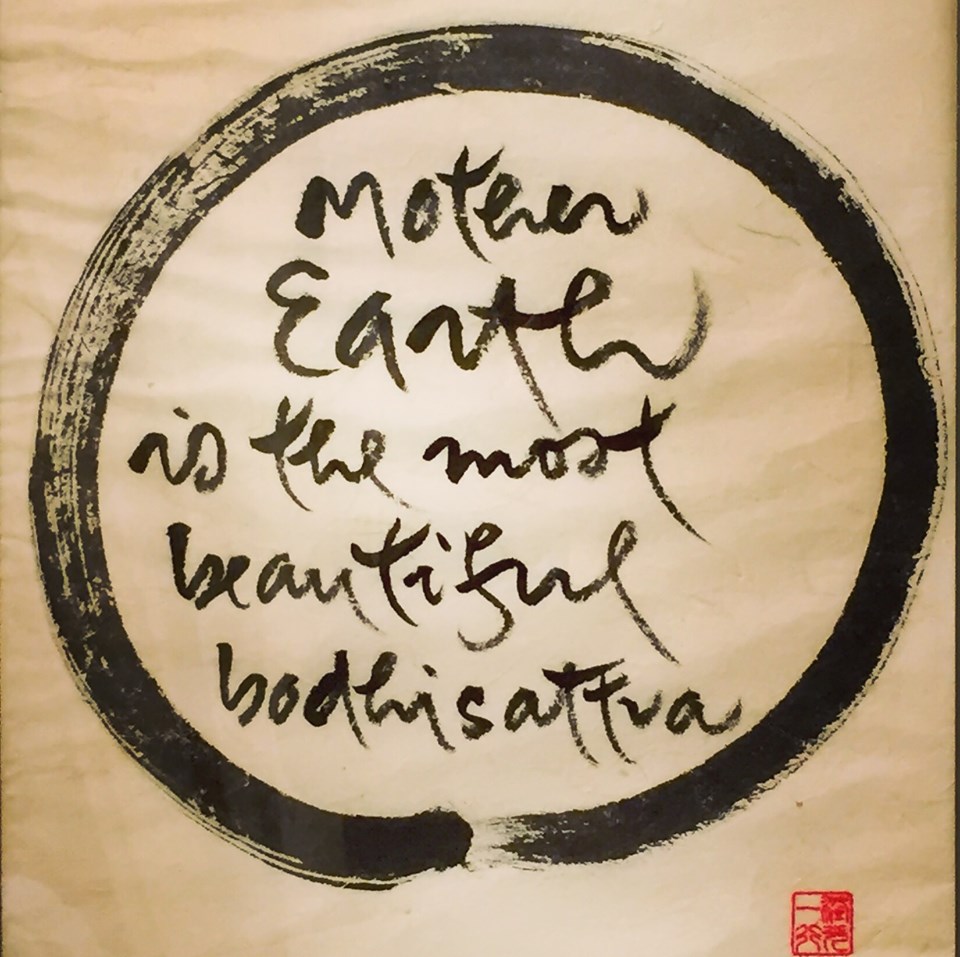 Mother
Earth
is the most
beautiful
bodhisattva
一行